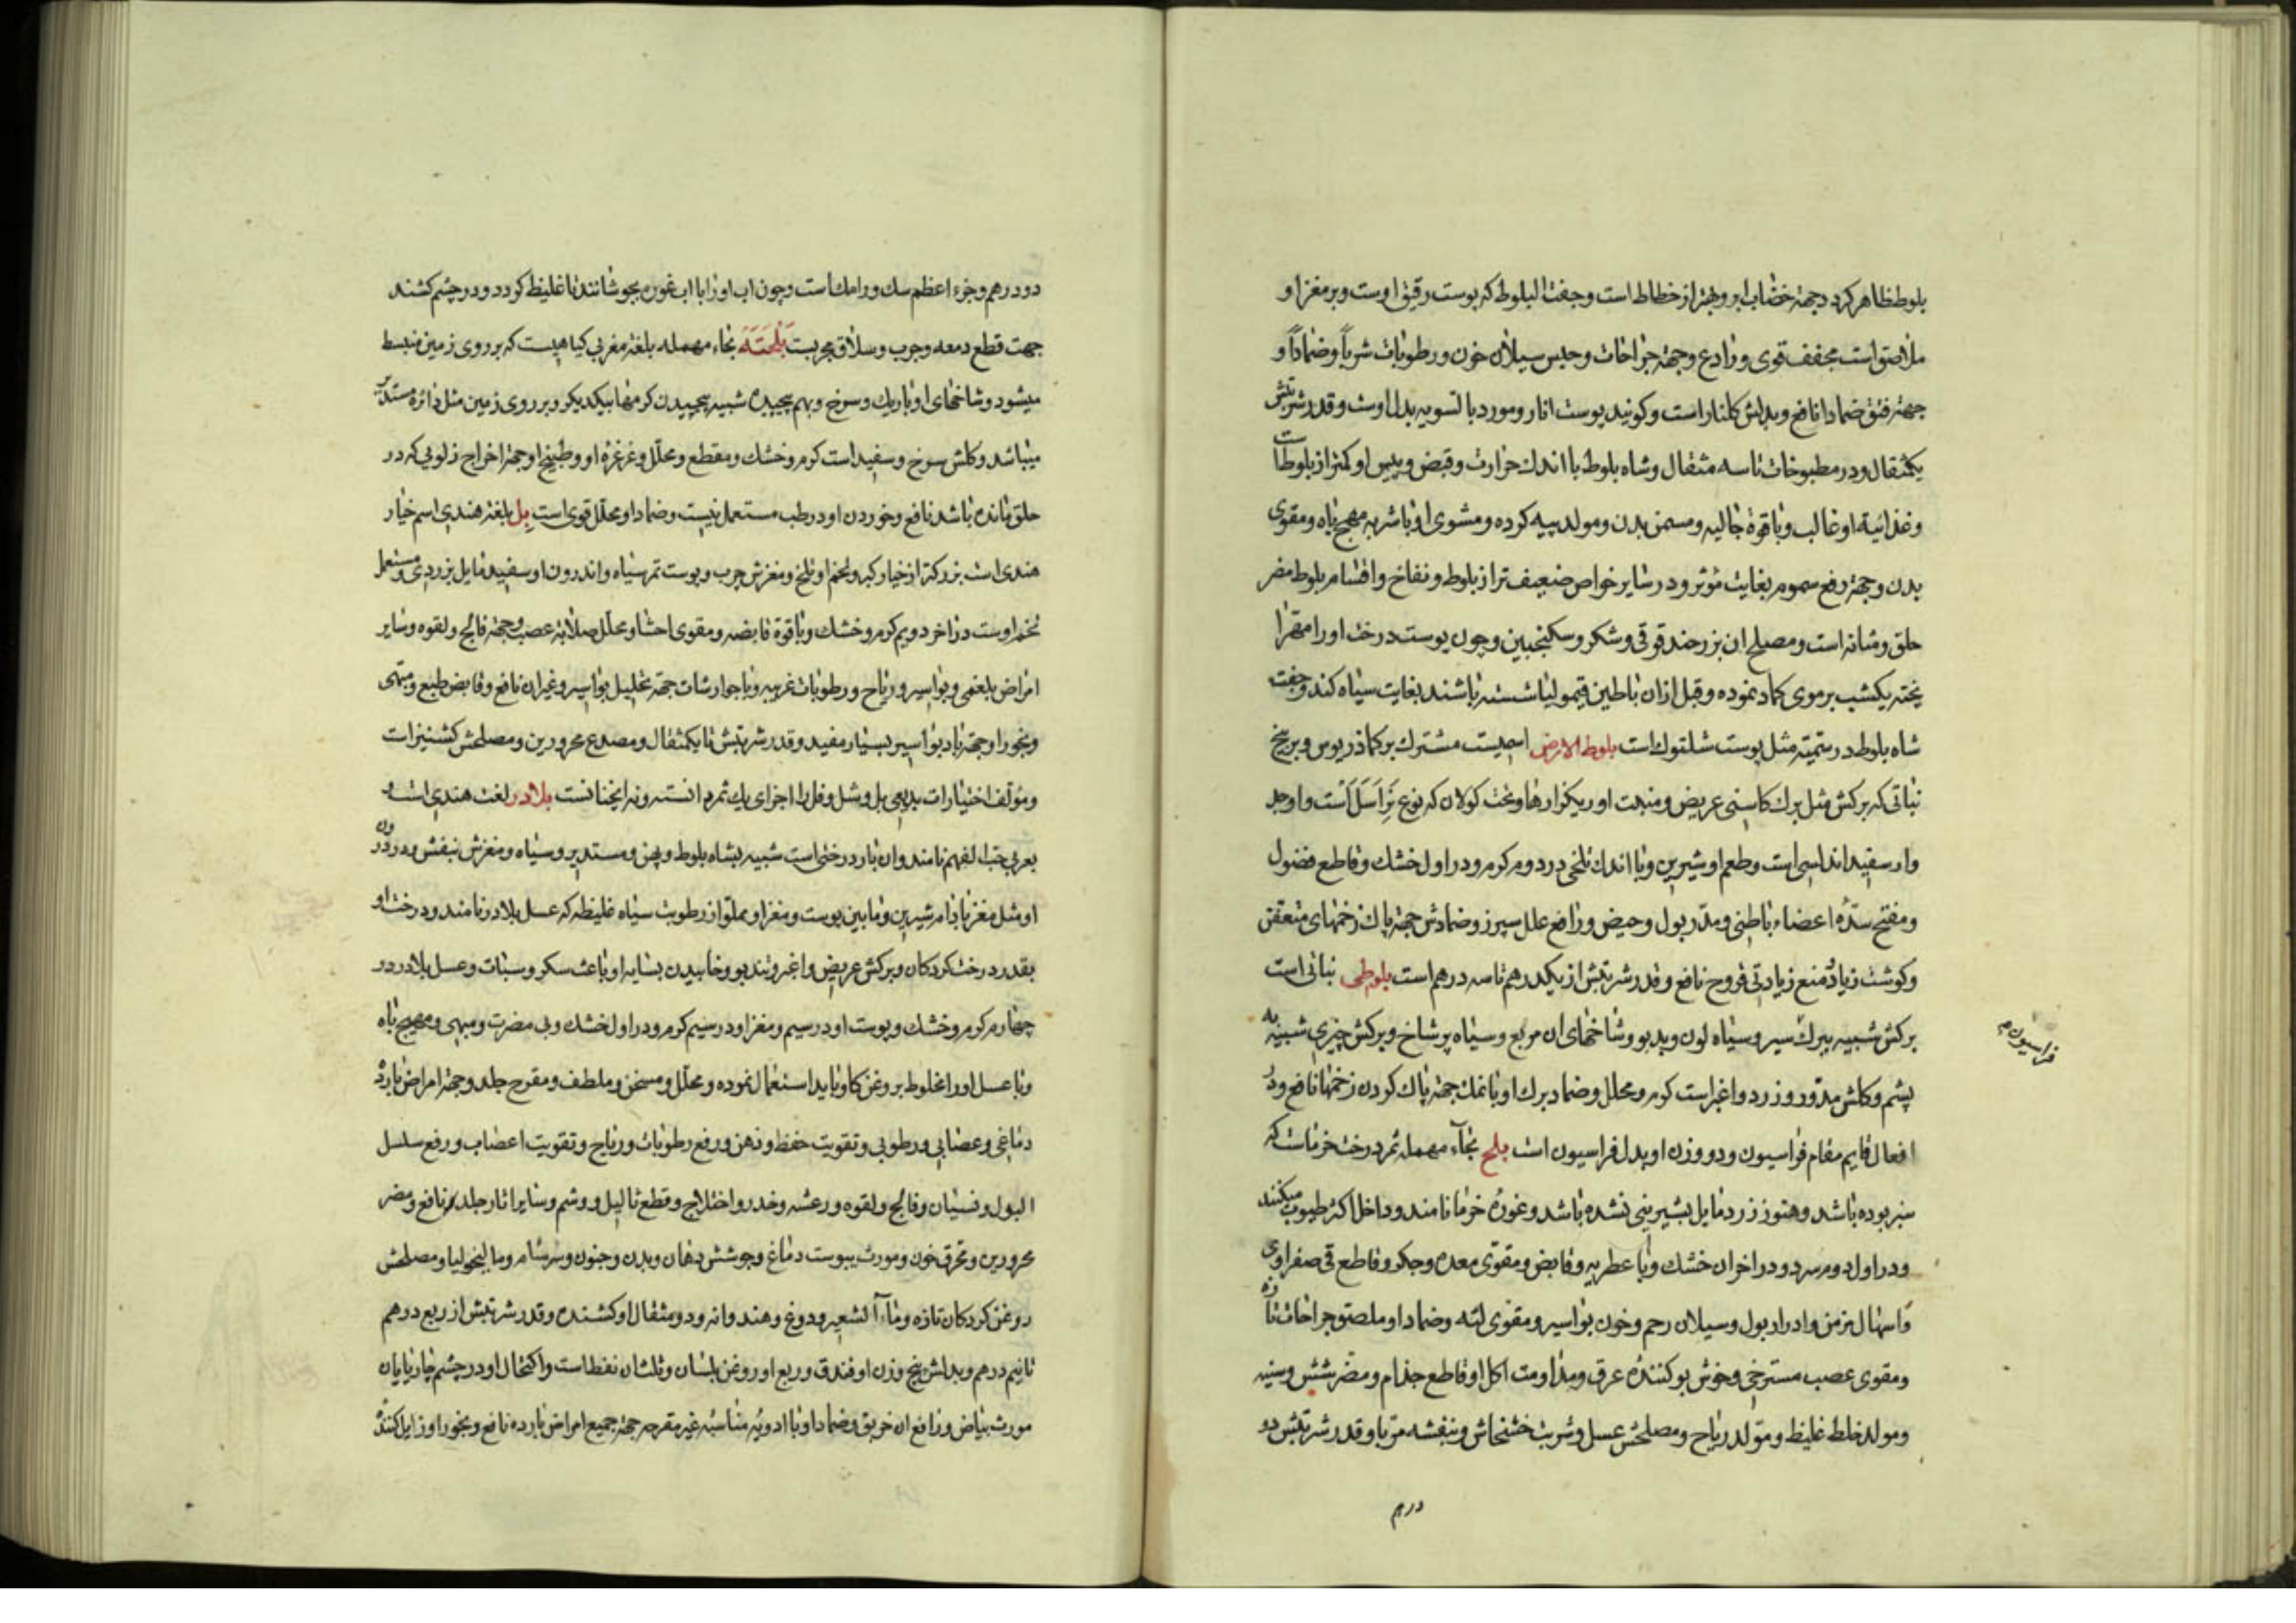 بلوط ظاهر کردد جهة خضاب ابرو بهتر از خطاط است و جفت البلوط که پوست رقیق اوست و بر مغز او
ملاصق است مجفف قوی و رادع و جهة جراحات و حبس سیلان خون و رطوبات شرباً و ضماداً و
جهة فتق ضمادا نافع و بدلش کلنار است و کویند پوست انار و مورد بالسویه بدل اوست و قدر شربتش
یکمثقال و در مطبوخات تا سه مثقال و شاه بلوط با اندک حرارت و قبض و یبس او کمتر از بلوط است
و غذائیة او غالب و با قوة جالیه و مسمن بدن و مولد پیه کرده و مشوی او با شربه مهیج باه و مقوی
بدن و جهة رفع سموم بغایت مؤثر و در سایر خواص ضعیف تر از بلوط و نفاخ و اقسام بلوط مضر
حلق و مثانه است و مصلح ان بزر حندقوقی و شکر و سکنجبین و چون پوست درخت او را مهرا
پخته یکشب بر موی کماد نموده و قبل ازان با طین قیمولیا شسته باشند بغایت سیاه کند و جفت
شاه بلوط در تتمیة مثل پوست شلتوک است بلوط الارض اسمیست مشترک بر کماذریوس و بر بیخ
نباتی که برکش مثل برک کاسنی عریض و منبت او ریکزارها و تحت کولان که نوع نر اسل است و او جد
وار سفید انداسی است و طعم او شیرین و با اندک تلخی در دوم کرم و در اول خشک و قاطع فضول
و مفتح سدّۀ اعضاء باطنی و مدّر بول و حیض و رافع علل سپرز و ضمادش جهة پاک زخمهای متعفن
و کوشت زیاد و منع زیادتی قروح نافع و قدر شربتش از یکدرهم تا سه درهم است بلوطی نباتی است
برکش شبیه ببرک سیر و سیاه لون و بدبو و شاخهای ان مربع و سیاه پر شاخ و برکش چیزی شبیه به
پشم و کلش مدّور و زرد و اغبر است کرم و محلل و ضماد برک او با نمک جهة پاک کردن زخمها نافع و در
فراسیون م
افعال قایم مقام فراسیون و دو وزن او بدل فراسیون است بلح بحاء مهمله ثمر درخت خرماست که
سبز بوده باشد و هنوز زرد مایل بشیرینی نشده باشد و غورۀ خرما نامند و داخل اکثر طیوب میکنند
و در اول دوم سرد و در اخر ان خشک و با عطریه و قابض و مقوّی معده و جکر و قاطع قی صفراوی
و اسهال مزمن و ادرار بول و سیلان رحم و خون بواسیر و مقوی لثه و ضماد او ملصق جراحات تازه
و مقوی عصب مسترخی و خوش بو کنندۀ عرق و مداومت اکل او قاطع جذام و مضر شش و سینه
و مولد خلط غلیظ و مولد ریاح و مصلحش عسل و شربت خشخاش و بنفشه مربا و قدر شربتش دو
درهم
دو درهم و جزء اعظم سک و رامک است و چون اب او را با اب غوره بجوشانند تا غلیظ کردد و در چشم کشند
جهت قطع دمعه و جرب و سلاق مجربست بَلْحَتَه بحاء مهمله بلغة مغربی کیاهیست که بر روی زمین منبسط
میشود و شاخهای او باریک و سرخ و بهم پیچیده شبیه بپیچیدن کرمها بیکدیکر و بر روی زمین مثل دائرۀ مستدیر
میباشد و کلش سرخ و سفید است کرم و خشک و مقطع و محلّل و غرغرۀ او و طبیخ او جهة اخراج زلویی که در
حلق مانده باشد نافع و خوردن او در طب مستعمل نیست و ضماد او محلّل قوی است بل بلغة هندی اسم خیار
هندی است بزرکتر از خیار کبر و تخم او تلخ و مغزش چرب و پوست ثمر سیاه و اندرون او سفید مایل بزردی و مستعمل
تخم اوست در اخر دویم کرم و خشک و با قوة قابضه و مقوی احشا و محلّل صلابة عصب و جهة فالج و لقوه و سایر
امراض بلغمی و بواسیر و ریاح و رطوبات غریبه و با جوارشات جهة تحلیل بواسیر و غیر ان نافع و قابض طبع و مبهی
و بخور او جهة باد بواسیر بسیار مفید و قدر شربتش تا یکمثقال و مصدع محرورین و مصلحش کشنیز است
و مؤلف اختیارات بدیعی بل و شل و فل را اجزای یک ثمر دانسته و نه اینچنانست بلادر لغت هندی است و
بعربی حب الفهم نامند و ان بار درختی است شبیه بشاه بلوط و پهن و مستدیر و سیاه و مغزش بنفش و درون
او مثل مغز بادام شیرین و مابین پوست و مغز او مملو از رطوبت سیاه غلیظه که عسل بلادر نامند و درخت او
بقدر درخت کردکان و برکش عریض و اغبر و تندبو و خوابیدن بسایه او باعث سکر و سبات و عسل بلادر در
چهارم کرم و خشک و پوست او در سیم و مغز او در سیم کرم و در اول خشک و بی مضرت و مبهی و مهیج باه
و با عسل او را مخلوط بروغن کاو باید استعمال نموده و محلّل و مسخن و ملطف و مقرح جلد و جهة امراض بارده
دماغی و عصابی و رطوبی و تقویت حفظ و ذهن و رفع رطوبات و ریاح و تقویت اعصاب و رفع سلسل
البول و نسیان و فالج و لقوه و رعشه و خدر و اختلاج و قطع ثالیل و وشم و سایر اثار جلد نافع و مضر
محرورین و محرق خون و مورث یبوست دماغ و جوشش دهان و بدن و جنون و سرسام و مالیخولیا و مصلحش
روغن کردکان تازه و ماء الشعیر و دوغ و هندوانه و دو مثقال او کشنده و قدر شربتش از ربع درهم
تا نیم درهم و بدلش پنج وزن او فندق و ربع او روغن بلسان و ثلث ان نفط است و اکتحال او در چشم چارپایان
مورث بیاض و رافع ان خربق و ضماد او با ادویۀ مناسبه غیر مقرحه جهة جمیع امراض بارده نافع و بخور او زایل کنندۀ